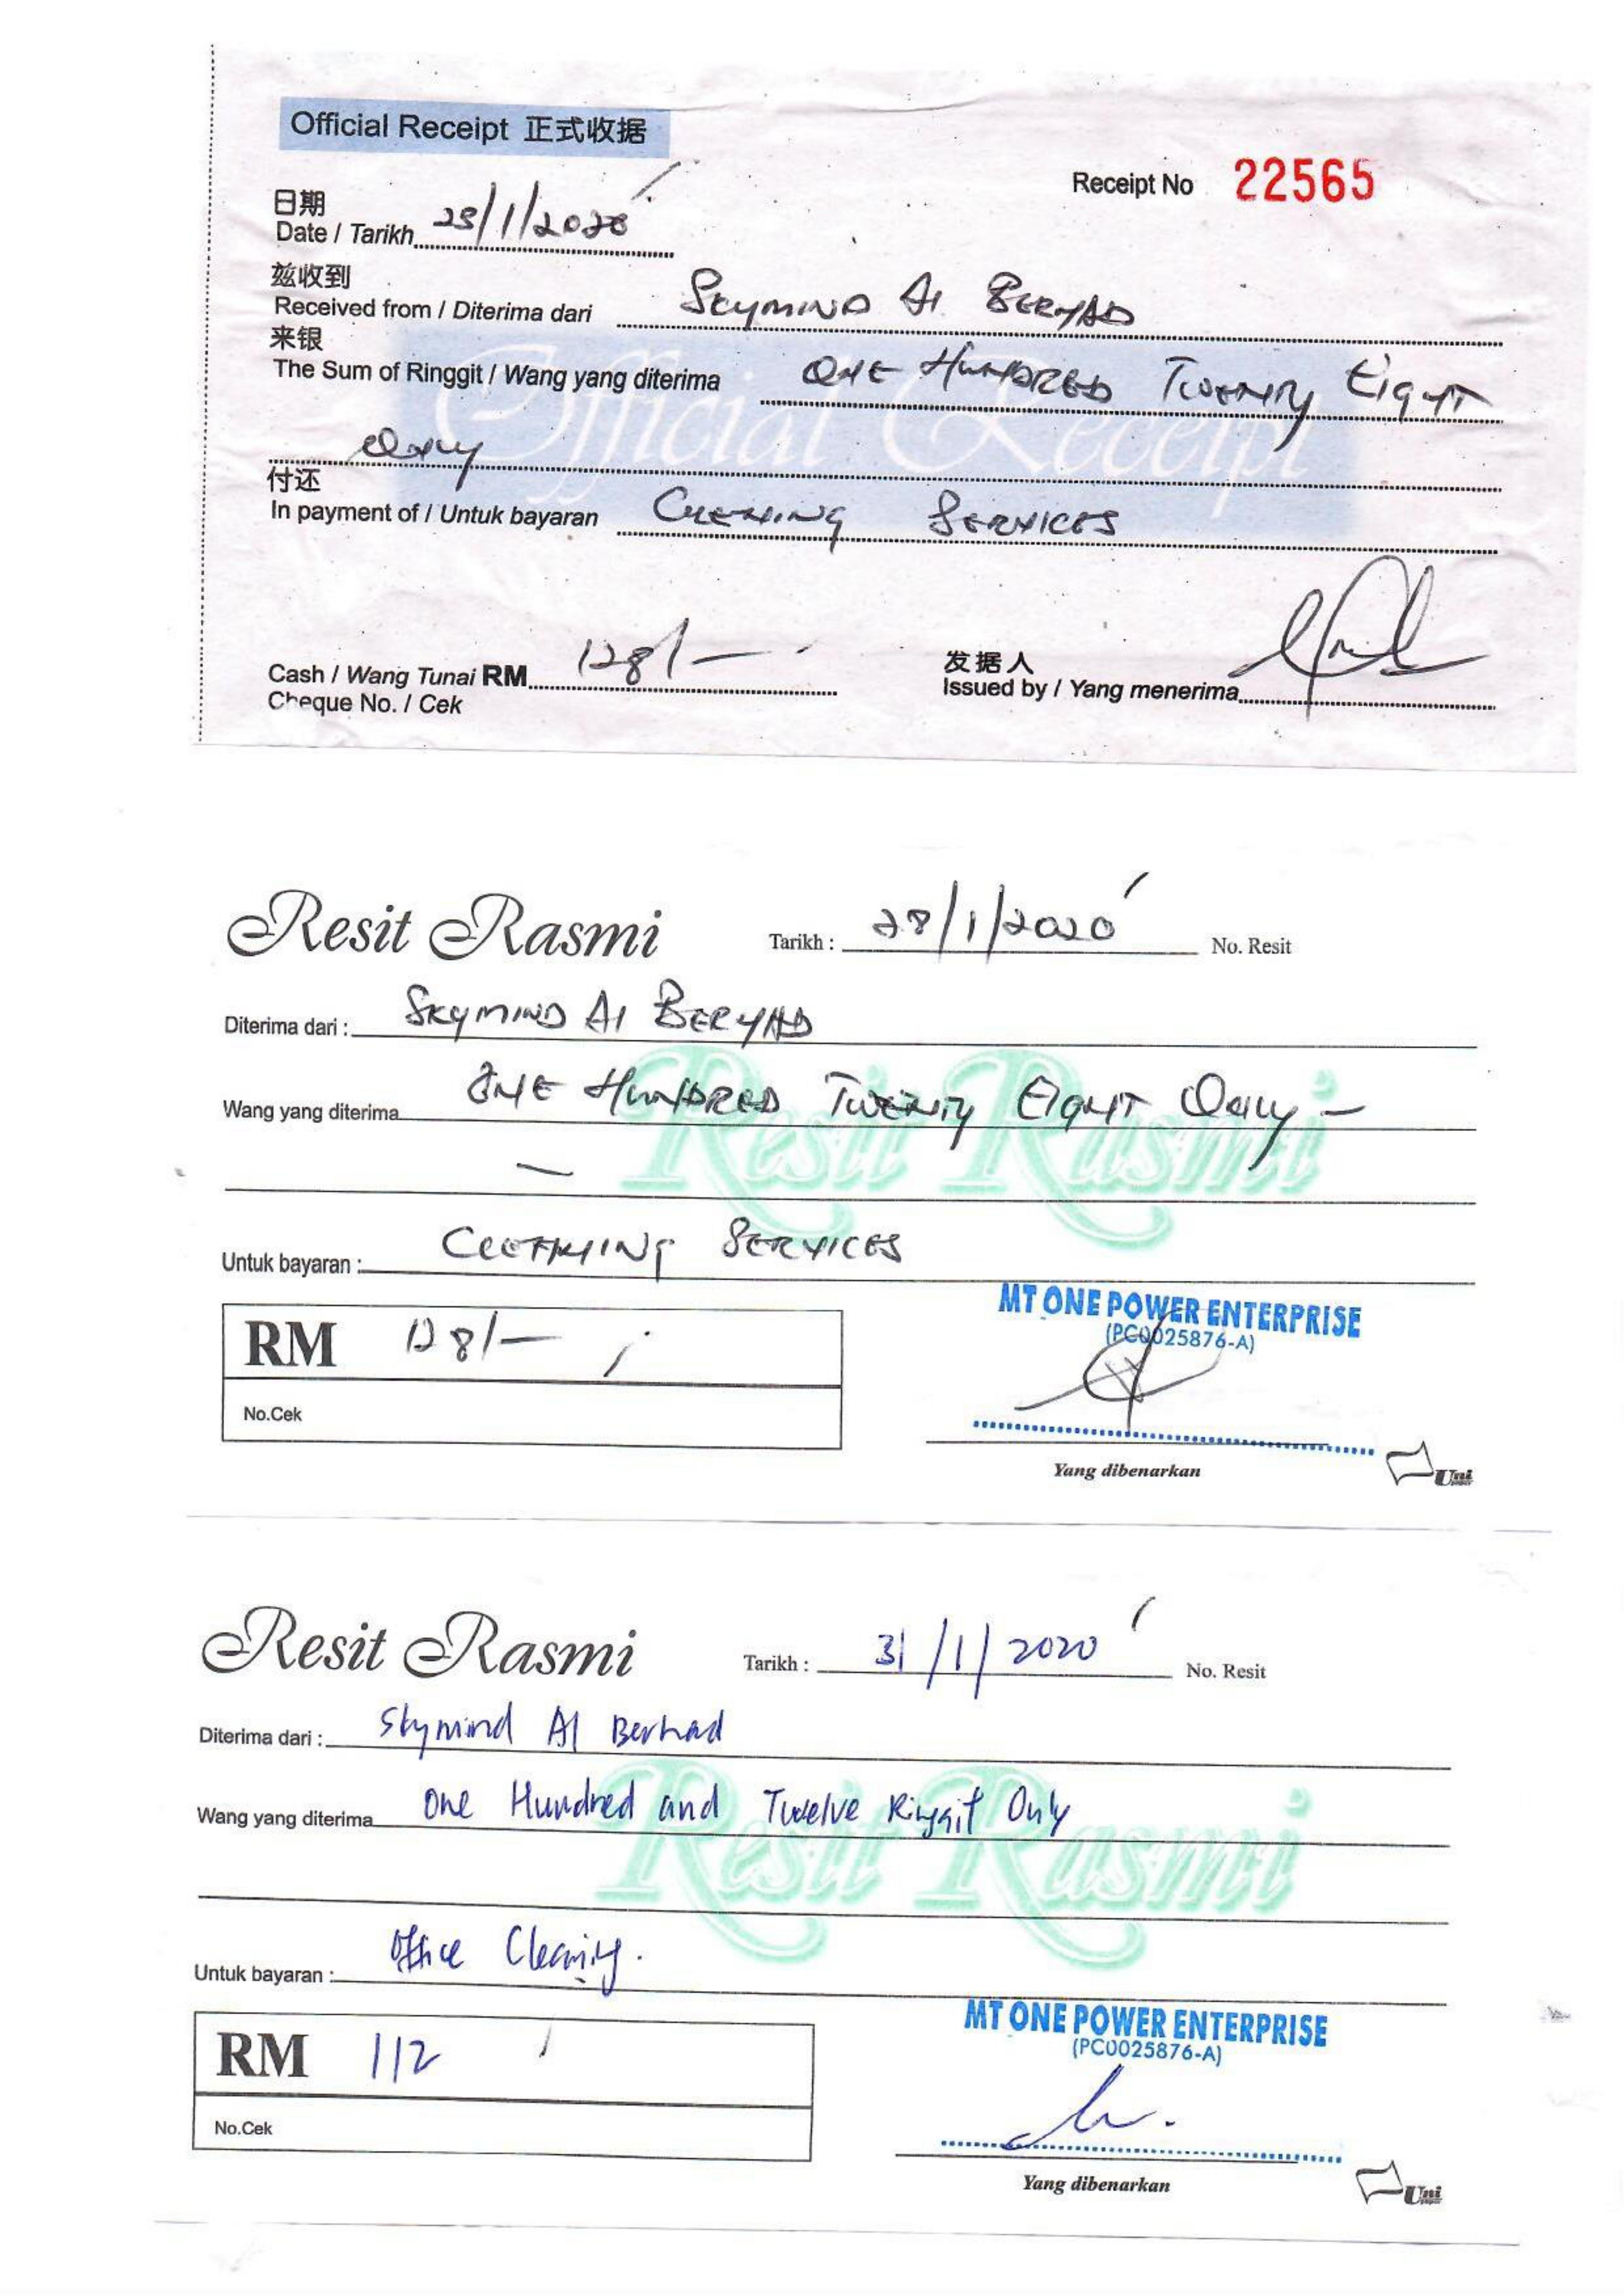 Official Receipt 正式收据
Receipt No 22565
日期
Date / Tarikh 23/1/2020
兹收到
Received from / Diterima dari SKYMIND AI BERHAD
来银
The Sum of Ringgit / Wang yang diterima ONE HUNDRED TWENTY EIGHT
ONLY
付还
In payment of / Untuk bayaran CLEANING SERVICES
Official Receipt
Cash / Wang Tunai RM 128/-
Cheque No. / Cek
发据人
Issued by / Yang menerima
Resit Rasmi
Tarikh : 28/1/2020
No. Resit
Diterima dari : SKYMIND AI BERHAD
Wang yang diterima ONE HUNDRED TWENTY EIGHT ONLY -
Resit Rasmi
Untuk bayaran : CLEANING SERVICES
RM 128/-
No.Cek
MT ONE POWER ENTERPRISE
(PC0025876-A)
Yang dibenarkan
Uni
Resit Rasmi
Tarikh : 31/1/2020
No. Resit
Diterima dari : Skymind AI Berhad
Wang yang diterima One Hundred and Twelve Ringgit Only
Resit Rasmi
Untuk bayaran : Office Cleaning.
RM 112
No.Cek
MT ONE POWER ENTERPRISE
(PC0025876-A)
Yang dibenarkan
Uni